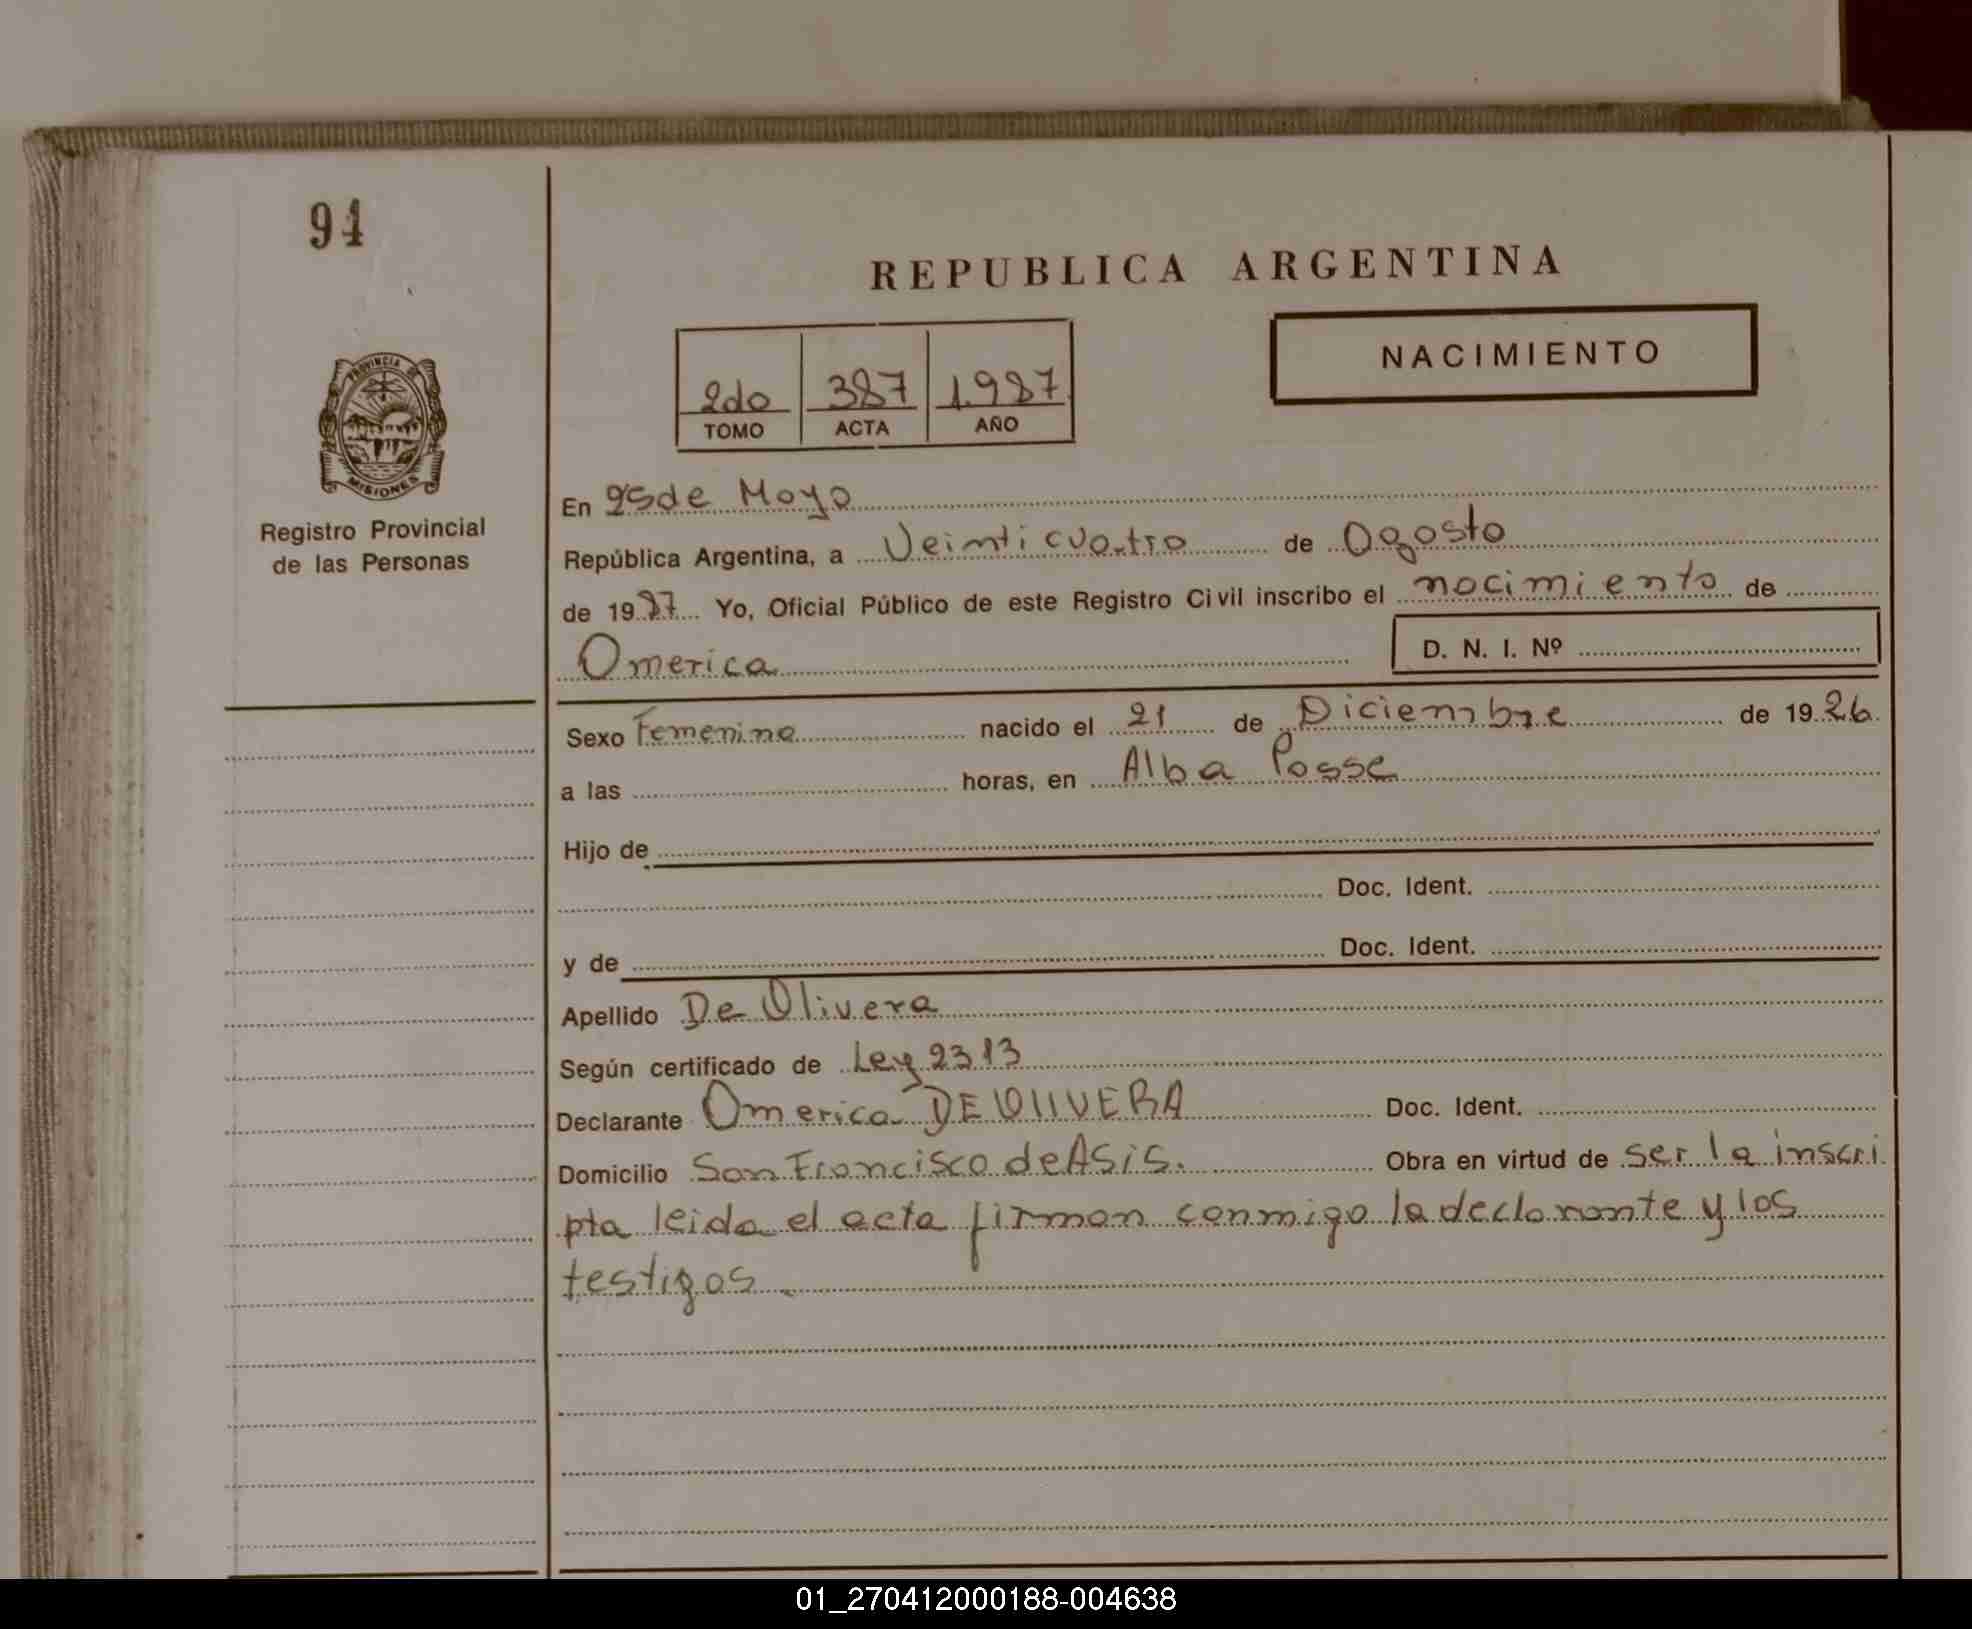 94
REPUBLICA ARGENTINA
NACIMIENTO
2do 387 1.987
TOMO ACTA AÑO
PROVINCIA DE
MISIONES
Registro Provincial
de las Personas
En 25 de Mayo
República Argentina, a Veinticuatro de Agosto
de 1987 Yo, Oficial Público de este Registro Civil inscribo el nacimiento de
America D. N. I. Nº
Sexo Femenino nacido el 21 de Diciembre de 1926
a las horas, en Alba Posse
Hijo de
Doc. Ident.
y de Doc. Ident.
Apellido De Olivera
Según certificado de Ley 2313
Declarante America DE OLIVERA Doc. Ident.
Domicilio San Francisco de Asis. Obra en virtud de ser la inscri
pta leida el acta firman conmigo la declarante y los
testigos.
01_270412000188-004638